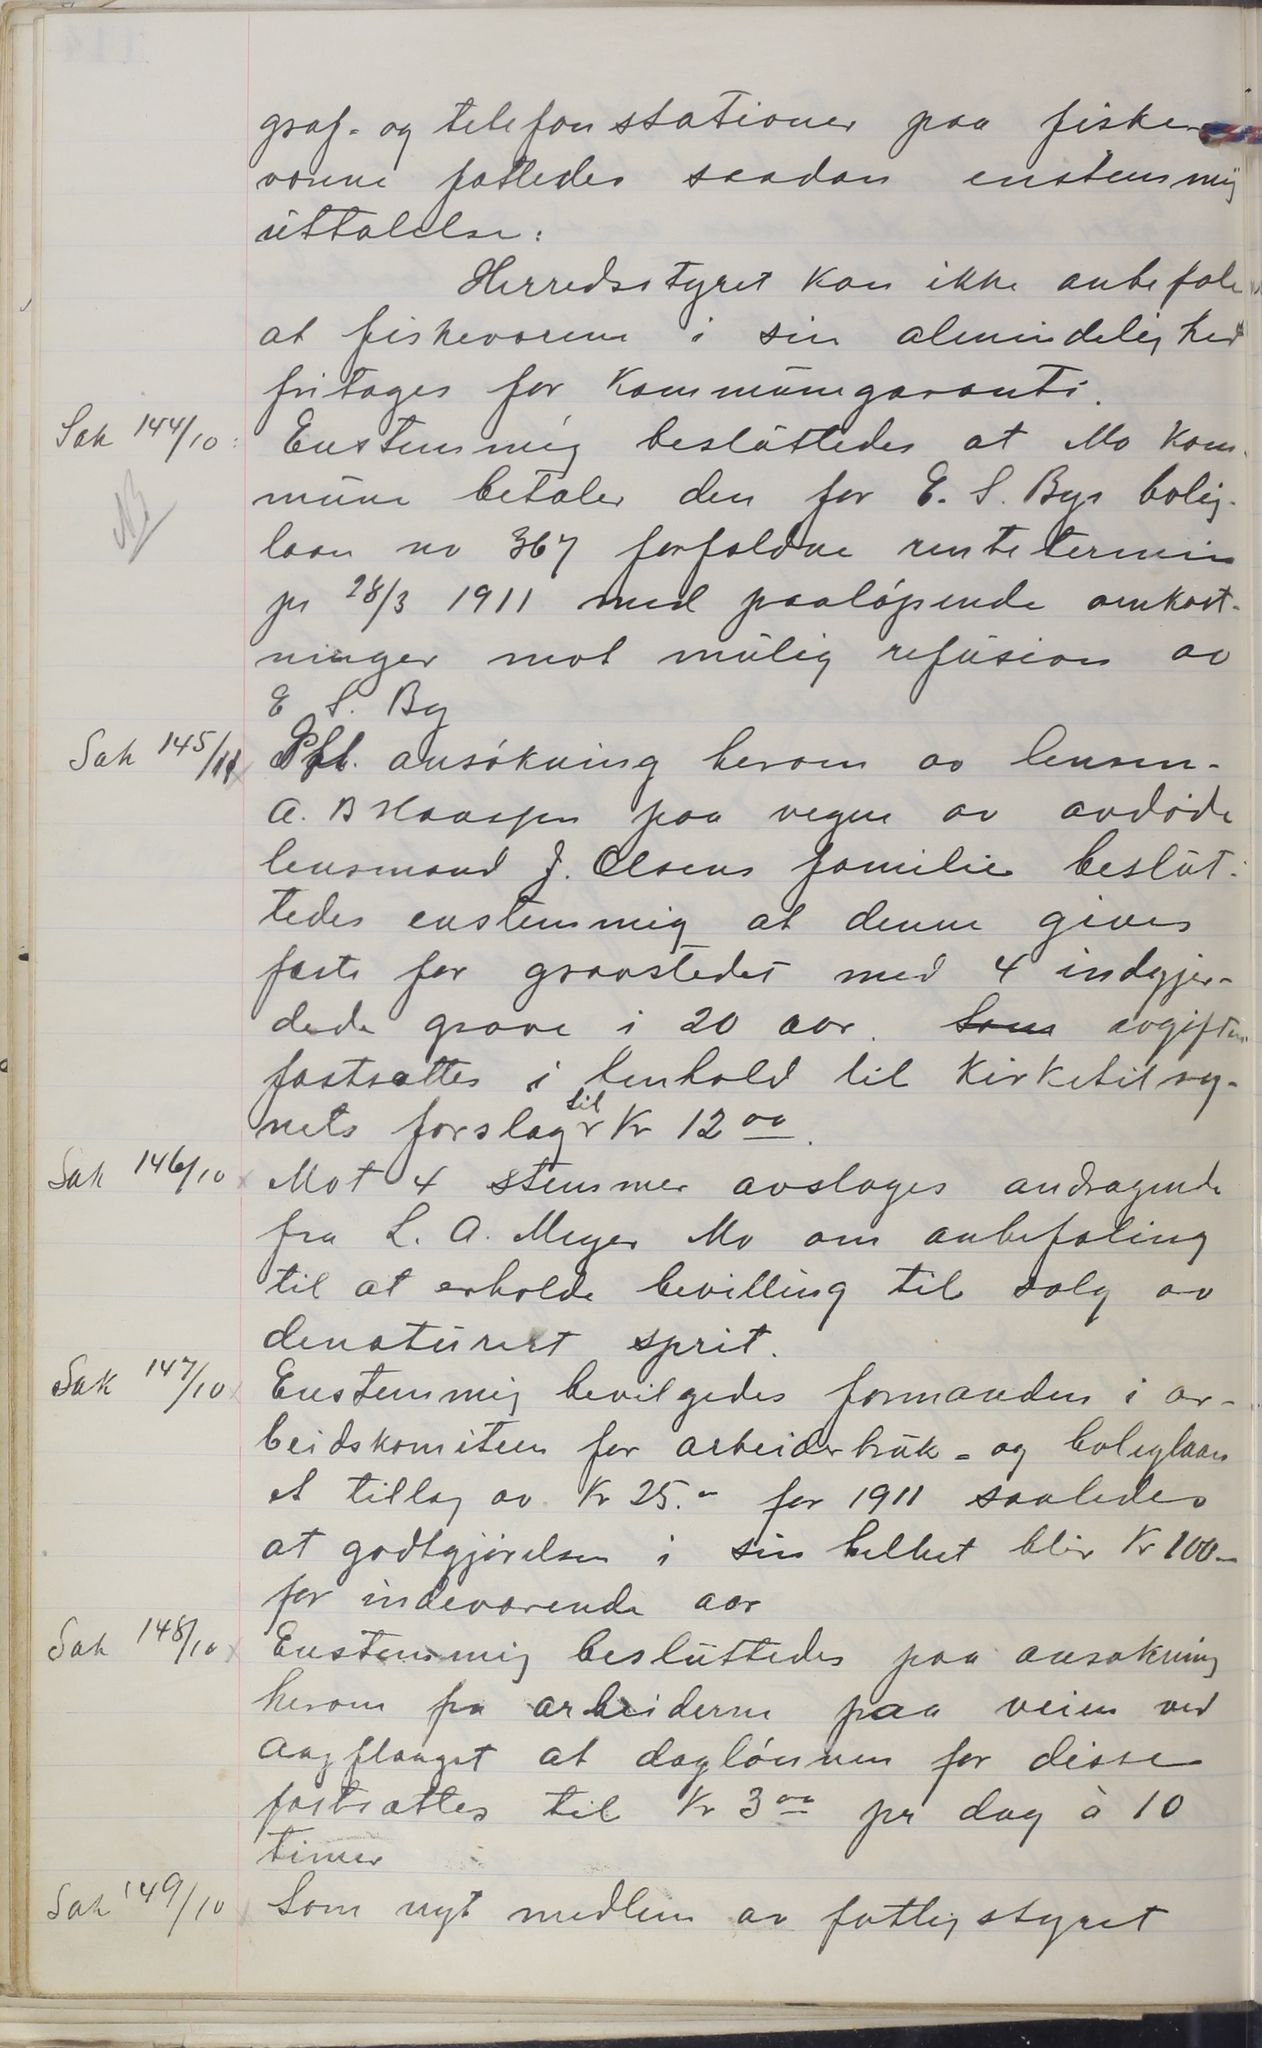 graf- og telefonstationer paa fiske-
værene fatledes saadan enstemmig
uttalelse:
Herredsstyret kan ikke anbefale
at fiskeværene i sin almindelighed
fritages for kommunegaranti.
Sak 144/10: Enstemmig besluttedes at Mo kom-
NB
mune betaler den for E. S. Bys bolig-
laan no 367 forfaldne rentetermin
pr 28/3 1911 med paaløpende omkost-
ninger mot mulig refusion av
E S. By
Sak 145/11 Efl. ansøkning herom av lensm.
A. B Haagen paa vegne av avdøde
lensmand J. Olsens familie beslut-
tedes enstemmig at denne gives
fæste for gravstedet med 4 indgjer-
dede grave i 20 aar. Som avgiften
fastsættes i henhold til kirketilsy-
nets forslag til Kr 12 00.
Sak 146/10 Mot 4 stemmer avslages andragende
fra L. A. Meyer Mo om anbefaling
til at erholde bevilling til salg av
denaturert sprit.
Sak 147/10 Enstemmig bevilgedes formanden i ar-
beidskomiteen for arbeiderbruk- og boliglaan
et tillæg av Kr 25.- for 1911 saaledes
at godtgjørelsen i sin helhet blir Kr 100-
for indeværende aar
Sak 148/10 Enstemmig besluttedes paa ansøkning
herom fra arbeiderne paa veien ved
Aagflauget at daglønnen for disse
fastsættes til Kr 3 00 pr dag à 10
timer
Sak 149/10 Som nyt medlem av fattigstyret